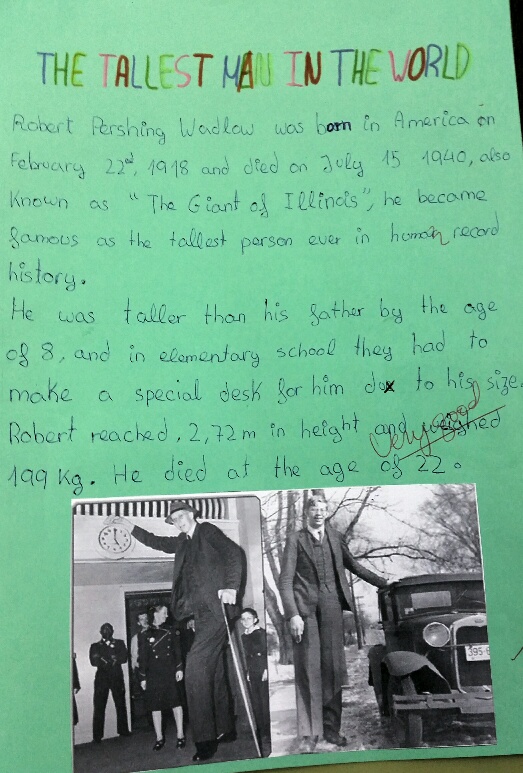 THE TALLEST MAN IN THE WORLD
Robert Pershing Wadlow was born in America on
February 22nd, 1918 and died on July 15 1940, also
Known as "The Giant of Illinois", he became
famous as the tallest person ever in human record
history.
He was taller than his father by the age
of 8, and in elementary school they had to
make a special desk for him due to his size.
Robert reached, 2,72m in height and weighed
very good
199 Kg. He died at the age of 22.
395-6